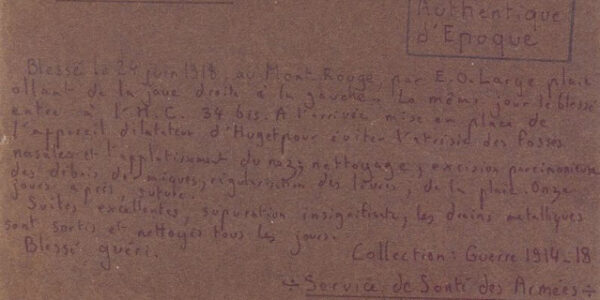 Authentique
d'Epoque
Blessé le 24 juin 1918, au Mont Rouge, par E.O. Large plaie
allant de la joue droite à la gauche. Le même jour le blessé
entre à l'H.C. 34 bis. A l'arrivée mise en place de
l'appareil dilatateur d'Huget pour éviter l'atrésie des fosses
nasales et l'applatissement du nez; nettoyage, excision parcimonieuse
des débris, régularisation des lèvres, de la plaie. Onze
jours après suture.
Suites excellentes, supuration insignifiante, les drains metalliques
sont sortis et nettoyés tous les jours.
Blessé guéri.
Collection: Guerre 1914-18
÷ Service de Santé des Armées ÷